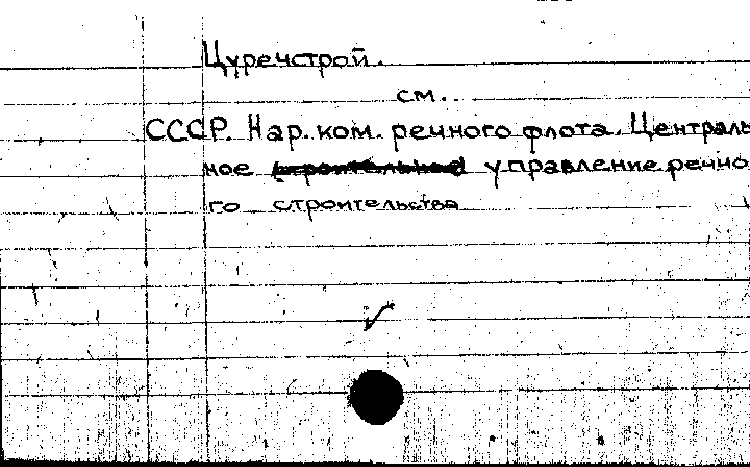 Цуречстрой.
см.
СССР. Нар. ком. речного флота. Централь
ное строительное управление речно
го строительства